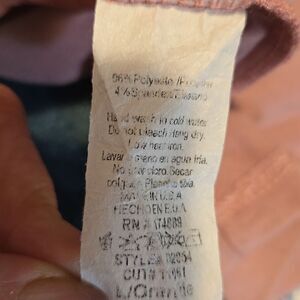 96% Polyester/
4% Spandex/
Hand wash in cold water.
Do not bleach. Hang dry.
Low heat iron.
Lavar a mano en agua fria.
No usar cloro. Secar
Plancha tibia.
MADE IN U.S.A
HECHO EN E.U.A
RN #
STYLE#
CUT#
L/Grande